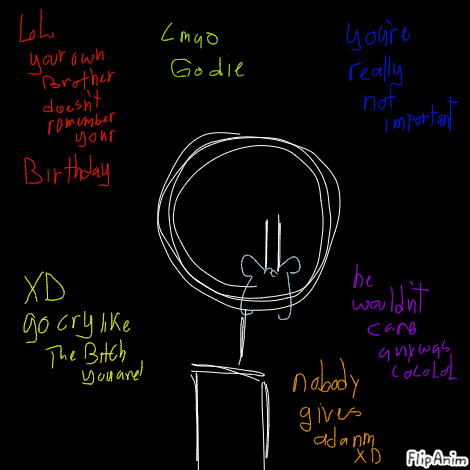 LoL
your own
Brother
doesn't
remember
your
Birthday
Lmao
Go die
you're
really
not
important
XD
go cry like
The Bitch
you are!
he
wouldn't
care
anyways
LOLOLOL
nobody
gives
adanm
XD
FlipAnim